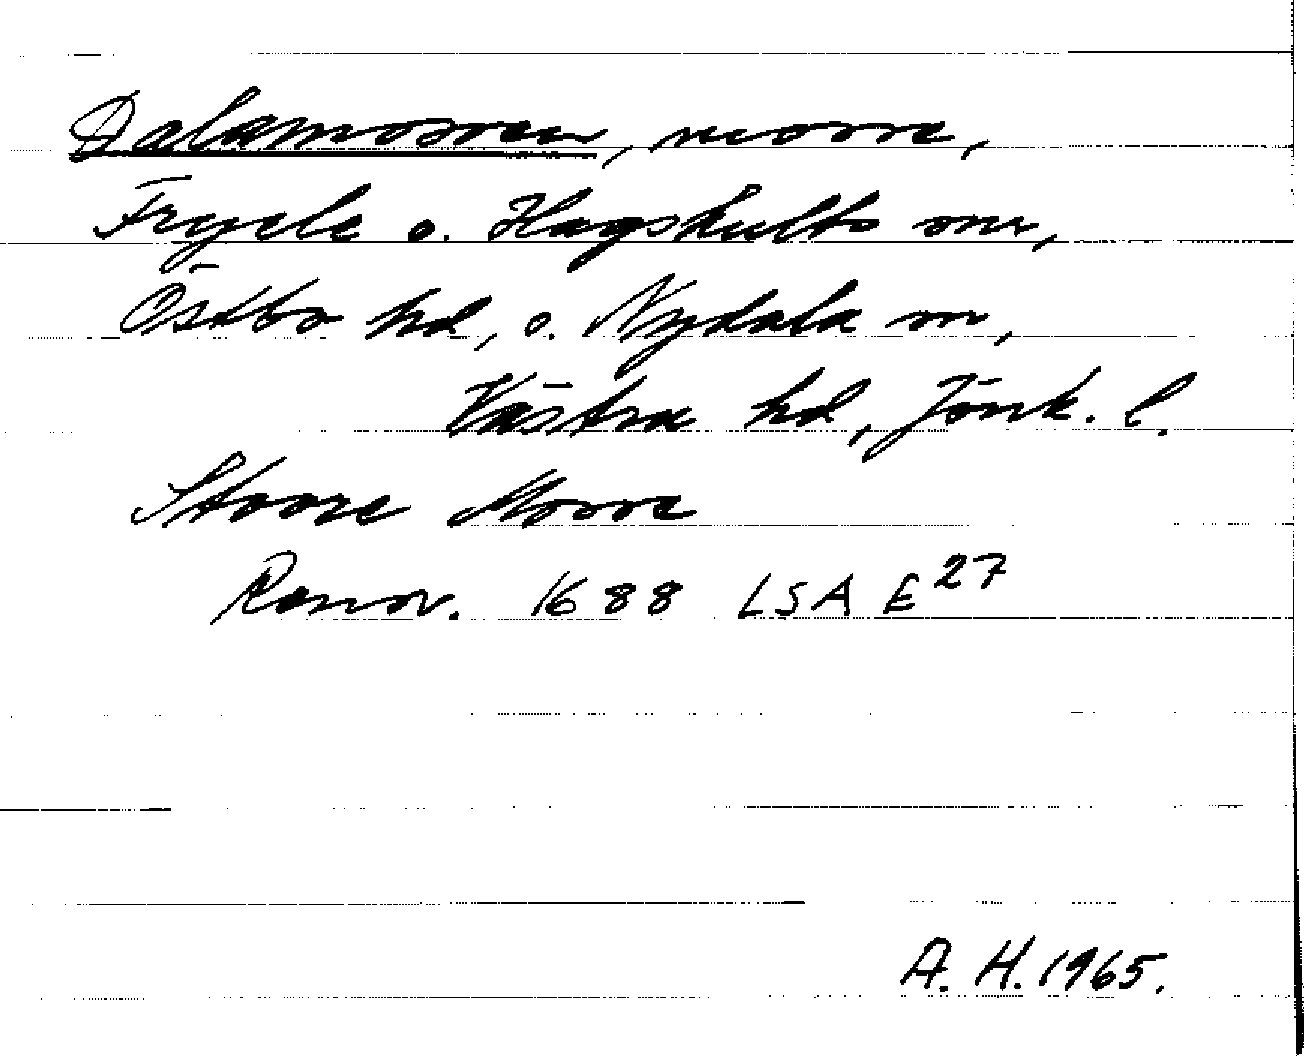 Dalamossen, mosse,
Fryele o. Hagshults snr,
Östbo hd, o. Nydala sn,
Västra hd, Jönk. l.
Stoore Mosse
Rannr. 1688 LSA E27
A. H. 1965.